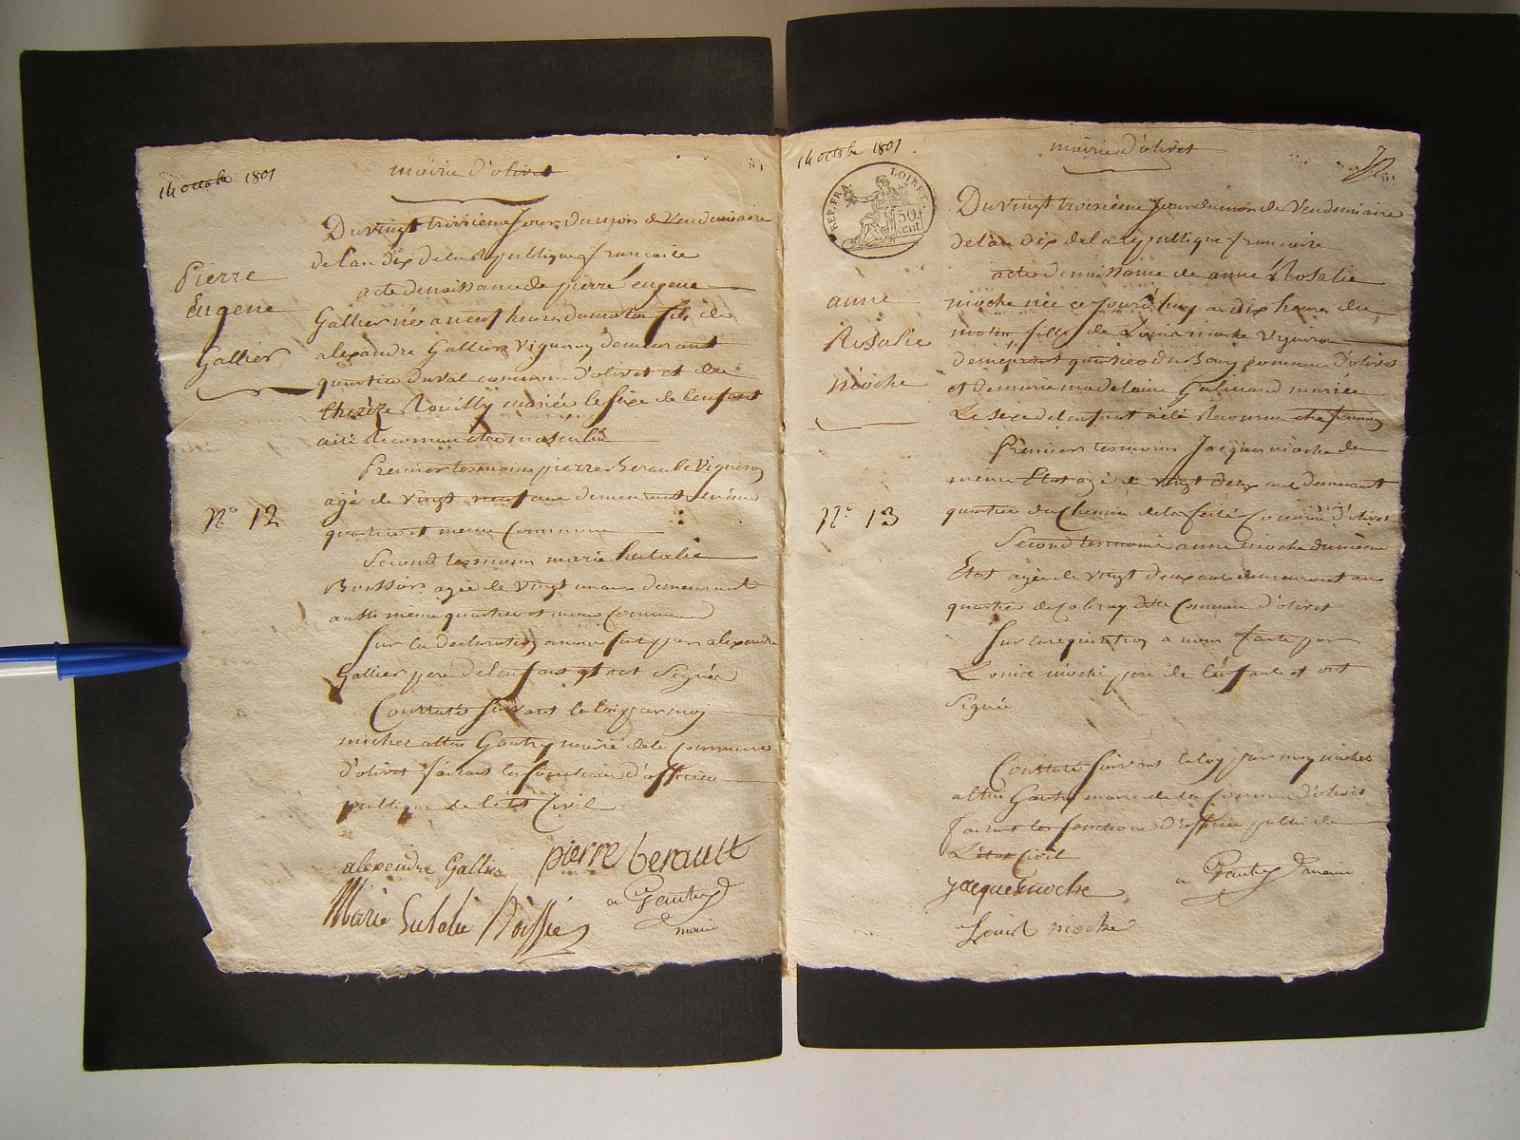 14 octobre 1801
mairie d'olivet
Pierre
Eugene
Gallier
N.° 12
Du vingt troisieme Jour du mois de Vendemiaire
de l'an dix de la Republique francaise
acte de naissance de pierre eugene
Gallier né a neuf heures du matin fils de
alexandre Gallier Vigneron demeurant
quartier du val commune d'olivet et de
therèze Rouilly mariés le sexe de l'enfant
a été Reconnu etre masculin
Premier temoin pierre berault Vigneron
agé de vingt neuf ans demeurant même
quartier et meme Commune
Second temoin marie Eulalie
Boissier agée de vingt un ans demeurant
aussi meme quartier et meme Commune
Sur la declaration a nous faitte par alexandre
Gallier pere de l'enfant et ont Signés
Constaté suivant la loi par moi
michel altin Gautry maire de la commune
d'olivet faisant les fonctions d'officier
publique de l'état Civil
alexendre Gallier
pierre berault
Marie Eulalie Boissié
a Gautry
maire
14 octobre 1801
mairie d'olivet
REP. FRA.
LOIRET
50
cent
anne
Rosalie
nioche
N.° 13
Du vingt troisieme Jour du mois de Vendemiaire
de l'an dix de la republique francaise
acte de naissance de anne Rosalie
nioche née ce jourd'huy a dix heures du
matin fille de Louis nioche Vigneron
demeurant quartier du Bourg commune d'olivet
et de marie madelaine mariés
Le sexe de l'enfant a été Reconnu etre feminin
Premier temoin Jacques nioche du
même Etat agé de vingt deux ans demeurant
quartier du Chemin de la ferté Commune d'olivet
Second temoin anne nioche du même
Etat agée de vingt deux ans demeurant au
quartier de Commune d'olivet
Sur la requisition a nous faitte par
Louis nioche pere de l'enfant et ont
Signés
Constaté suivant la loy par moy michel
altin Gautry maire de la Commune d'olivet
faisant les fonctions d'officier public de
L'état Civil
jacque nioche
a Gautry maire
Louis nioche